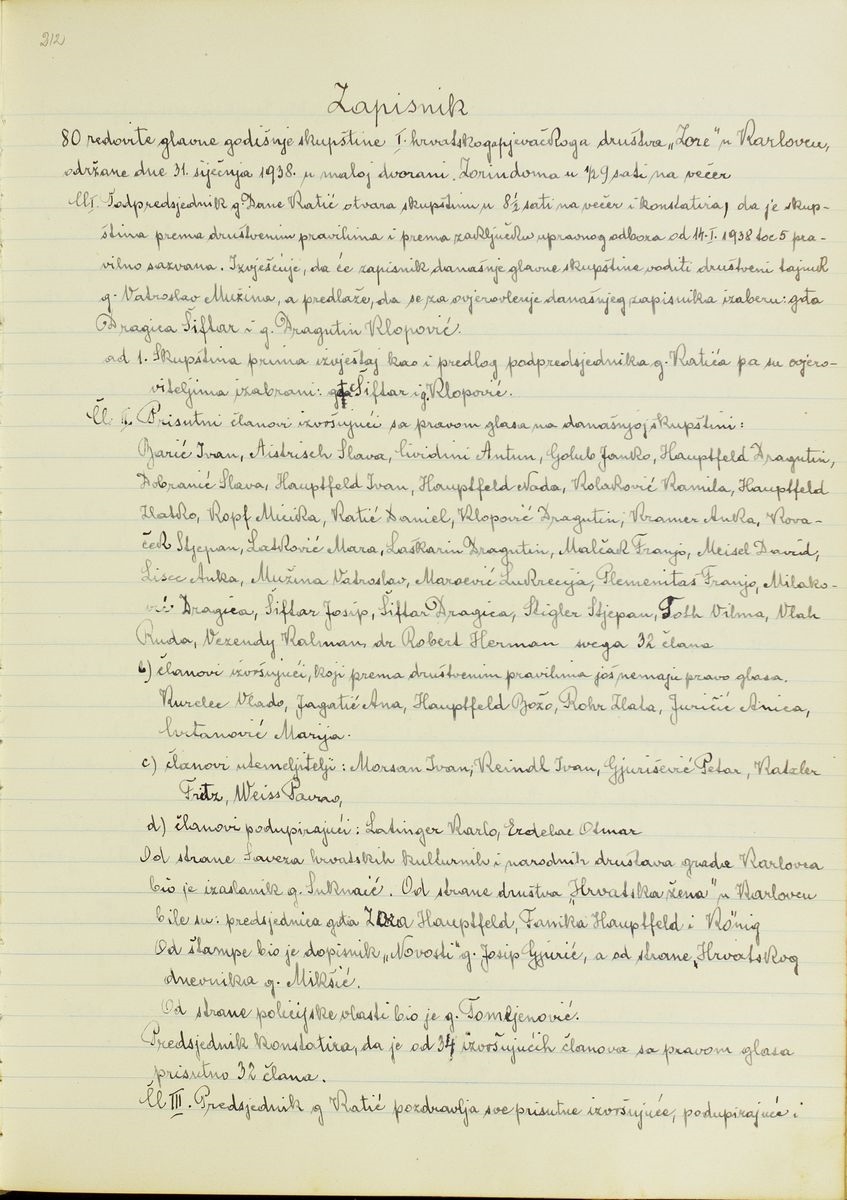 212
Zapisnik
80 redovite glavne godišnje skupštine I. hrvatskoga pjevačkoga društva „Zore" u Karlovcu,
održane dne 31. siječnja 1938. u maloj dvorani Zorindoma u 1/29 sati na večer
Čl I. Podpredsjednik g. Dane Katić otvara skupštinu u 8½ sati na večer i konstatira, da je skup-
ština prema društvenim pravilima i prema zaključku upravnog odbora od 14.I.1938 toč 5 pra-
vilno sazvana. Izvješćuje, da će zapisnik današnje glavne skupštine voditi društveni tajnik
g. Vatroslav Mužina, a predlaže, da se za ovjerovlenje današnjeg zapisnika izaberu: gđa
Dragica Šiftar i g. Dragutin Klopović.
ad 1. Skupština prima izvještaj kao i predlog podpredsjednika g. Katića pa su ovjero-
viteljima izabrani: gđa Šiftar i g. Klopović.
Čl II. Prisutni članovi izvršujući sa pravom glasa na današnjoj skupštini:
Barić Ivan, Aistrisch Slava, Cividini Antun, Golub Janko, Hauptfeld Dragutin,
Dobranić Slava, Hauptfeld Ivan, Hauptfeld Nada, Kolaković Kamila, Hauptfeld
Zlatko, Kopf Micika, Katić Daniel, Klopović Dragutin, Kramer Anka, Kova-
ček Stjepan, Latković Mara, Laškarin Dragutin, Malčak Franjo, Meisel David,
Lisec Anka, Mužina Vatroslav, Maroević Lukrecija, Plemenitaš Franjo, Milako-
vić Dragica, Šiftar Josip, Šiftar Dragica, Stigler Stjepan, Toth Vilma, Vlah
Ruda, Vezendy Kalman, dr Robert Herman svega 32 člana
b) članovi izvršujući, koji prema društvenim pravilima još nemaju pravo glasa.
Kurelec Vlado, Jagatić Ana, Hauptfeld Božo, Rohr Zlata, Juričić Anica,
Cvitanović Marija.
c) članovi utemeljitelji: Morsan Ivan, Reindl Ivan, Gjurišević Petar, Katzler
Fritz, Weiss Pavao,
d) članovi podupirajući: Latinger Karlo, Erdelac Otmar
Od strane Saveza hrvatskih kulturnih i narodnih društava grada Karlovca
bio je izaslanik g. Suknaić. Od strane društva „Hrvatska žena" u Karlovcu
bile su: predsjednica gđa Zora Hauptfeld, Fanika Hauptfeld i König
Od štampe bio je dopisnik „Novosti" g. Josip Gjurić, a od strane „Hrvatskog
dnevnika g. Mikšić.
Od strane policijske vlasti bio je g. Tomljenović.
Predsjednik konstatira, da je od 34 izvršujućih članova sa pravom glasa
prisutno 32 člana.
Čl III. Predsjednik g Katić pozdravlja sve prisutne izvršujuće, podupirajuće i